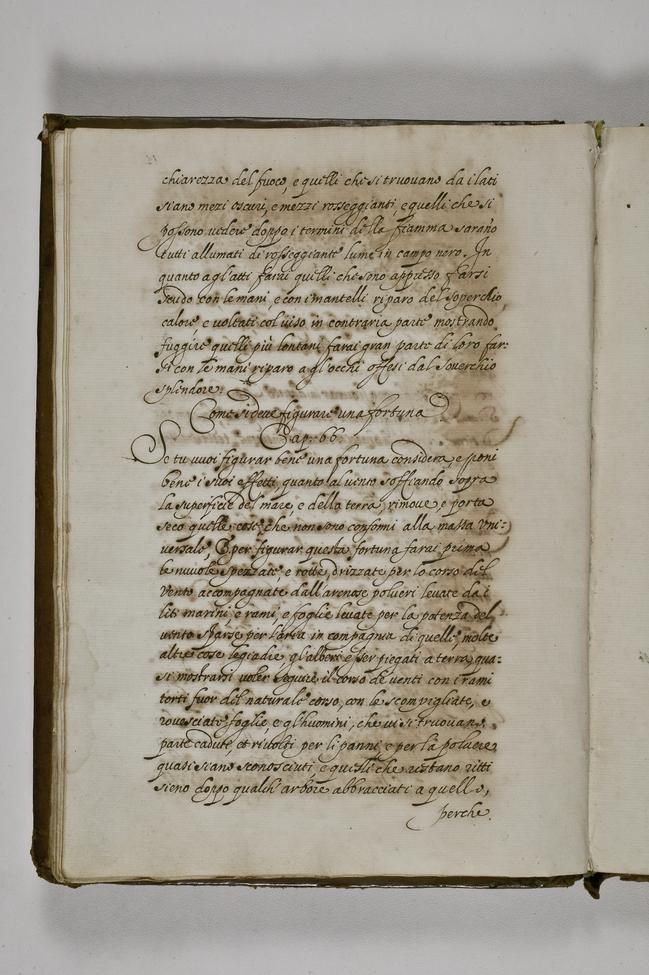 chiarezza del fuoco, e quelli che si truovano da i lati
siano mezi oscuri, e mezzi rosseggianti, e quelli che si
possono vedere doppo i termini della fiamma sarano
tutti allumati di rosseggiante lume in campo nero. In
quanto a gl'atti farai quelli che sono appresso farsi
scudo con le mani, e con i mantelli riparo del soperchio
calore e voltati col uiso in contraria parte mostrando
fuggire quelli più lontani farai gran parte di loro far:
si con le mani riparo a gl'occhi offesi dal soverchio
splendore.
Come si deve figurare una fortuna
Cap: 66
Se tu vuoi figurar bene una fortuna considera, e poni
bene i suoi effetti, quanto al uento soffiando sopra
la superficie del mare, e della terra, rimove, e porta
seco quelle cose, che non sono conformi alla massa Vni:
versale, E per figurar questa fortuna farai prima
le nuvole spezzate, e rotte, drizzate per lo corso del
Vento, accompagnate dall'arenose polueri levate da i
liti marini e rami, e foglie levate per la potenza del
uento sparse per l'aria in compagnia di quelli, molte
altre cose legiadre gl'alberi esser piegati a terra, qua:
si mostrarsi voler seguire il corso de venti con i rami
torti fuor del naturale corso, con le scompigliate, e
rovesciate foglie, e gl'huomini, che ui si truovano
parte caduti, et rivolti per li panni, e per la poluere
quasi siano sconosciuti, e quelli che restano ritti
sieno doppo qualch' arbore abbracciati a quello,
perche